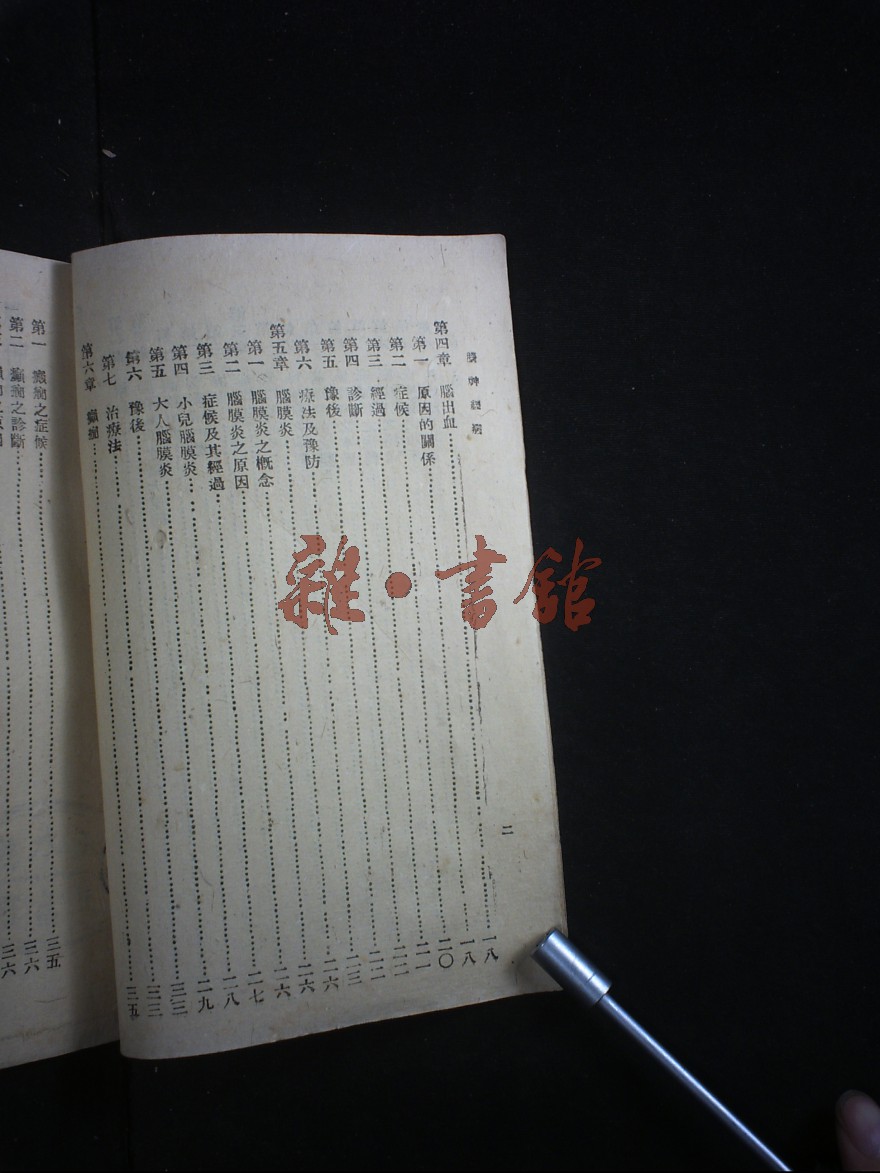 腦神經病
二
第四章 腦出血……一八
第一 原因的關係……一八
第二 症候……二〇
第三 經過……二一
第四 診斷……二二
第五 豫後……二二
第六 療法及豫防……二三
第五章 腦膜炎……二六
第一 腦膜炎之概念……二六
第二 腦膜炎之原因……二六
第三 症候及其經過……二七
第四 小兒腦膜炎……二八
第五 大人腦膜炎……二九
第六 豫後……三三
第七 治療法……三三
第六章 癲癇……三五
第一 癲癇之症候……三五
第二 癲癇之診斷……三六
三六
雜·書館